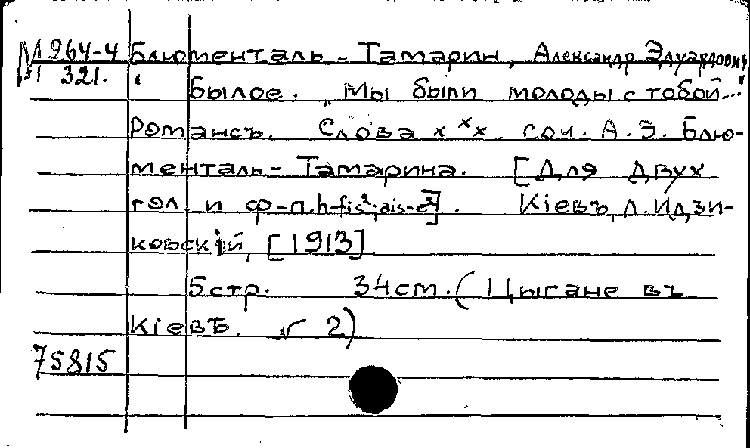 М 964-4 Блюменталь-Тамарин, Александр Эдуардович
321.
Былое. „Мы были молоды с тобой..."
Романсъ. Слова x x x соч. А.Э. Блю-
менталь-Тамарина. [Для двух
гол. и ф-п. h-fis²; ais-e²]. Кіевъ, Л. Идзи-
ковскій, [1913]
5 стр. 34 cm. (Цыгане въ
Кіевѣ. № 2)
75815